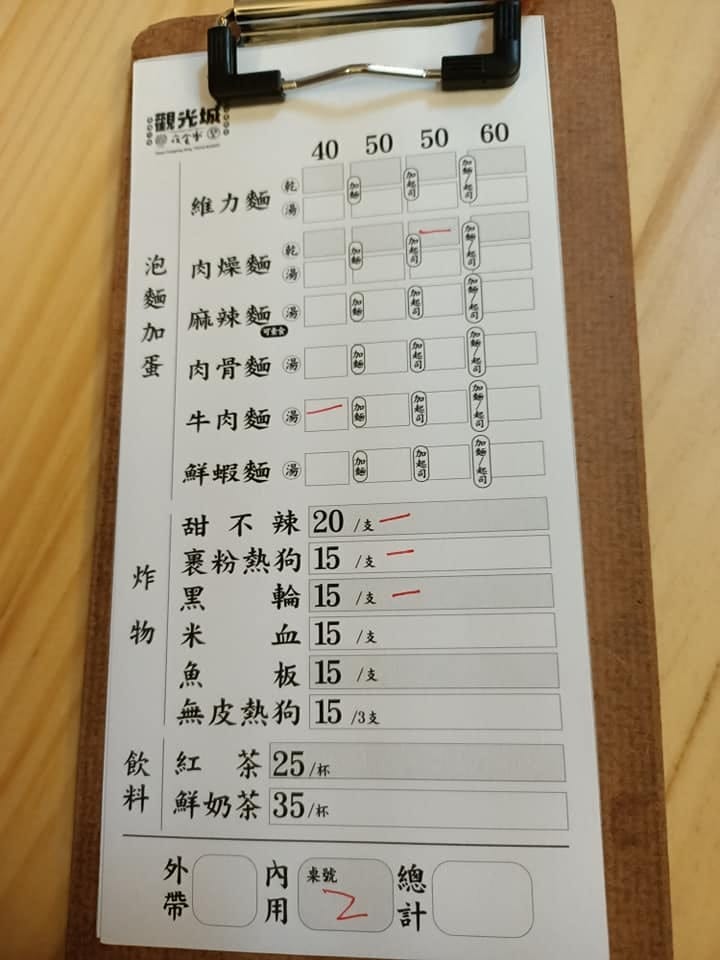 觀光城
40 50 50 60
泡麵加蛋
維力麵 乾 加麵 加起司 加麵/起司
湯
肉燥麵 乾 加麵 加起司 加麵/起司
湯
麻辣麵 湯 加麵 加起司 加麵/起司
肉骨麵 湯 加麵 加起司 加麵/起司
牛肉麵 湯 加麵 加起司 加麵/起司
鮮蝦麵 湯 加麵 加起司 加麵/起司
炸物
甜不辣 20/支 一
裹粉熱狗 15/支 一
黑輪 15/支 一
米血 15/支
魚板 15/支
無皮熱狗 15/3支
飲料
紅茶 25/杯
鮮奶茶 35/杯
外帶 內用 桌號 2 總計